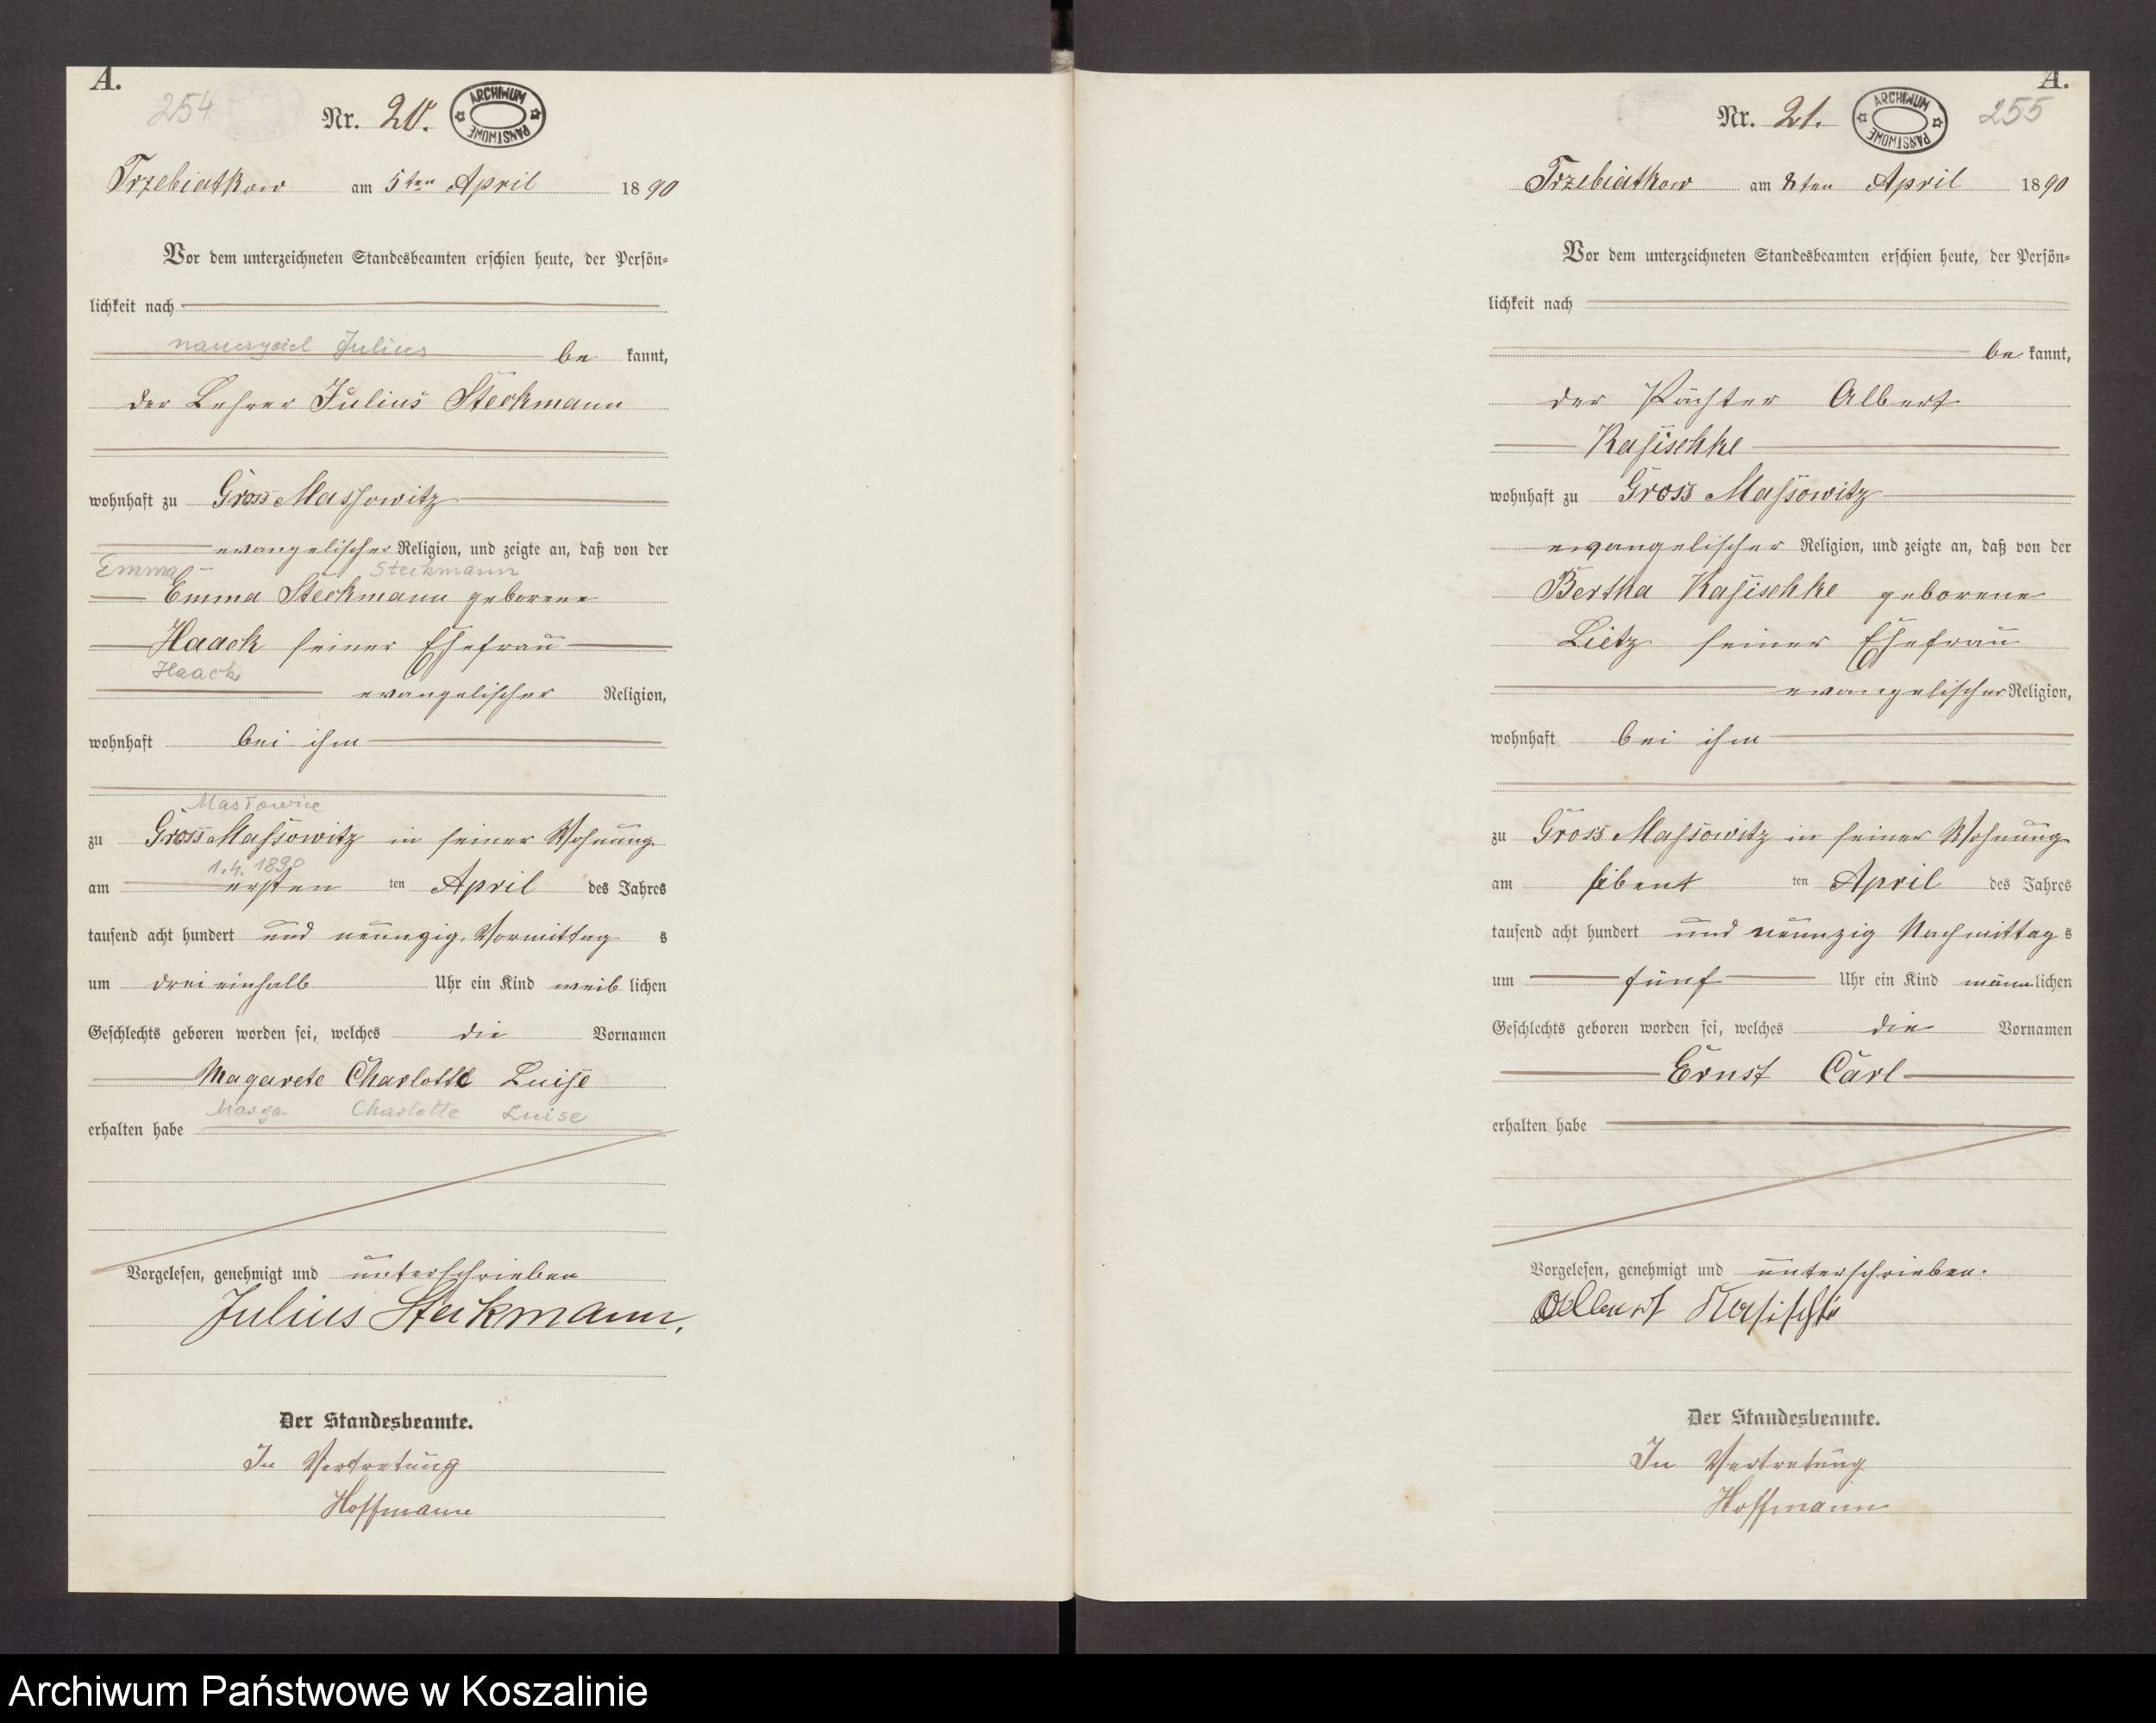 A.
254
Nr. 20.
ARCHIWUM PAŃSTWOWE
Trzebiatkow am 5ten April 1890
Vor dem unterzeichneten Standesbeamten erschien heute, der Persön-
lichkeit nach
nauczyciel Julius
be kannt,
der Lehrer Julius Steckmann
wohnhaft zu Gross Massowitz
evangelischer Religion, und zeigte an, daß von der
Emma Steckmann
Emma Steckmann geborene
Haack seiner Ehefrau
Haack
evangelischer Religion,
wohnhaft bei ihm
Masłowice
zu Gross Massowitz in seiner Wohnung
1.4.1890
am ersten ten April des Jahres
tausend acht hundert und neunzig, Vormittag s
um drei einhalb Uhr ein Kind weib lichen
Geschlechts geboren worden sei, welches die Vornamen
Magarete Charlotte Luise
Marga Charlotte Luise
erhalten habe
Vorgelesen, genehmigt und unterschrieben
Julius Steckmann.
Der Standesbeamte.
In Vertretung
Hoffmann
A.
255
Nr. 21.
ARCHIWUM PAŃSTWOWE
Trzebiatkow am 8ten April 1890
Vor dem unterzeichneten Standesbeamten erschien heute, der Persön-
lichkeit nach
be kannt,
der Pächter Albert
Kasischke
wohnhaft zu Gross Massowitz
evangelischer Religion, und zeigte an, daß von der
Bertha Kasischke geborene
Lietz seiner Ehefrau
evangelischer Religion,
wohnhaft bei ihm
zu Gross Massowitz in seiner Wohnung
am siebent ten April des Jahres
tausend acht hundert und neunzig Nachmittag s
um fünf Uhr ein Kind männ lichen
Geschlechts geboren worden sei, welches die Vornamen
Ernst Carl
erhalten habe
Vorgelesen, genehmigt und unterschrieben.
Albert Kasischke
Der Standesbeamte.
In Vertretung
Hoffmann
Archiwum Państwowe w Koszalinie